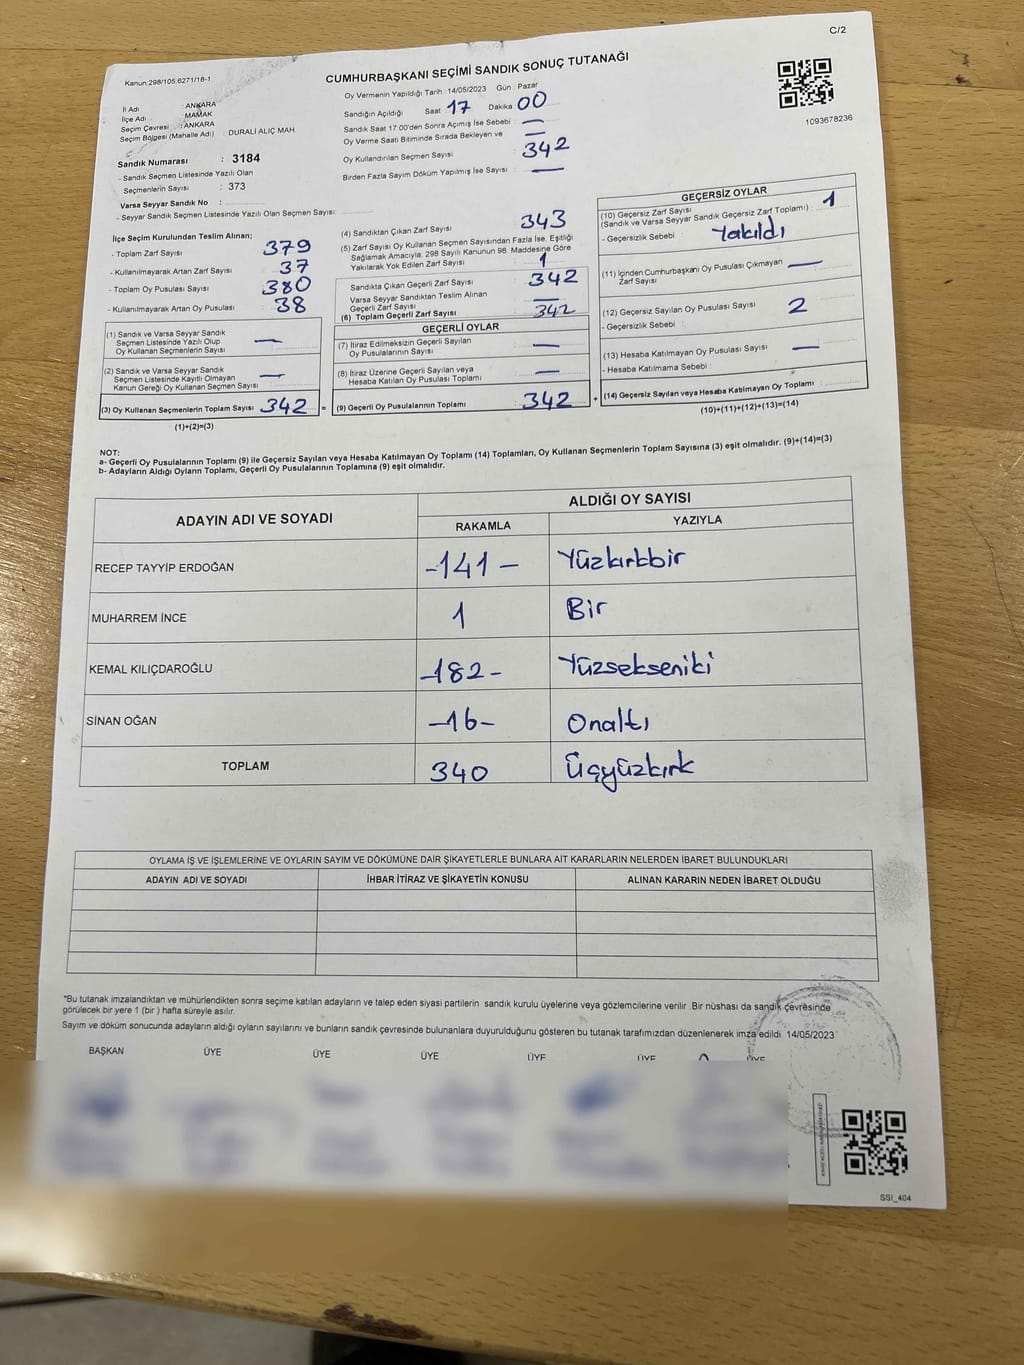 C/2
Kanun:298/105,6271/18-1
CUMHURBAŞKANI SEÇİMİ SANDIK SONUÇ TUTANAĞI
Oy Vermenin Yapıldığı Tarih : 14/05/2023 Gün : Pazar
İl Adı : ANKARA
İlçe Adı : MAMAK
Seçim Çevresi : ANKARA
Seçim Bölgesi (Mahalle Adı) : DURALİ ALIÇ MAH.
Sandık Numarası : 3184
- Sandık Seçmen Listesinde Yazılı Olan
Seçmenlerin Sayısı : 373
Varsa Seyyar Sandık No :
- Seyyar Sandık Seçmen Listesinde Yazılı Olan Seçmen Sayısı:
Sandığın Açıldığı Saat 17 Dakika 00
Sandık Saat 17:00'den Sonra Açımış İse Sebebi : —
Oy Verme Saati Bitiminde Sırada Bekleyen ve —
Oy Kullandırılan Seçmen Sayısı 342
Birden Fazla Sayım Döküm Yapılmış İse Sayısı : —
1093678236
İlçe Seçim Kurulundan Teslim Alınan;
- Toplam Zarf Sayısı 379
- Kullanılmayarak Artan Zarf Sayısı 37
- Toplam Oy Pusulası Sayısı 380
- Kullanılmayarak Artan Oy Pusulası 38
(1) Sandık ve Varsa Seyyar Sandık
Seçmen Listesinde Yazılı Olup
Oy Kullanan Seçmenlerin Sayısı —
(2) Sandık ve Varsa Seyyar Sandık
Seçmen Listesinde Kayıtlı Olmayan
Kanun Gereği Oy Kullanan Seçmen Sayısı —
(3) Oy Kullanan Seçmenlerin Toplam Sayısı 342 =
(1)+(2)=(3)
(4) Sandıktan Çıkan Zarf Sayısı 343
(5) Zarf Sayısı Oy Kullanan Seçmen Sayısından Fazla İse, Eşitliği
Sağlamak Amacıyla, 298 Sayılı Kanunun 98. Maddesine Göre
Yakılarak Yok Edilen Zarf Sayısı 1
Sandıkta Çıkan Geçerli Zarf Sayısı 342
Varsa Seyyar Sandıktan Teslim Alınan
Geçerli Zarf Sayısı —
(6) Toplam Geçerli Zarf Sayısı 342
GEÇERLİ OYLAR
(7) İtiraz Edilmeksizin Geçerli Sayılan
Oy Pusulalarının Sayısı —
(8) İtiraz Üzerine Geçerli Sayılan veya
Hesaba Katılan Oy Pusulası Toplamı —
(9) Geçerli Oy Pusulalarının Toplamı 342 +
GEÇERSİZ OYLAR
(10) Geçersiz Zarf Sayısı
(Sandık ve Varsa Seyyar Sandık Geçersiz Zarf Toplamı) : 1
- Geçersizlik Sebebi : Yakıldı
(11) İçinden Cumhurbaşkanı Oy Pusulası Çıkmayan
Zarf Sayısı —
(12) Geçersiz Sayılan Oy Pusulası Sayısı 2
- Geçersizlik Sebebi :
(13) Hesaba Katılmayan Oy Pusulası Sayısı —
- Hesaba Katılmama Sebebi :
(14) Geçersiz Sayılan veya Hesaba Katılmayan Oy Toplamı :
(10)+(11)+(12)+(13)=(14)
NOT:
a- Geçerli Oy Pusulalarının Toplamı (9) ile Geçersiz Sayılan veya Hesaba Katılmayan Oy Toplamı (14) Toplamları, Oy Kullanan Seçmenlerin Toplam Sayısına (3) eşit olmalıdır. (9)+(14)=(3)
b- Adayların Aldığı Oyların Toplamı, Geçerli Oy Pusulalarının Toplamına (9) eşit olmalıdır.
ADAYIN ADI VE SOYADI ALDIĞI OY SAYISI
RAKAMLA YAZIYLA
RECEP TAYYİP ERDOĞAN -141- Yüzkırkbir
MUHARREM İNCE 1 Bir
KEMAL KILIÇDAROĞLU -182- Yüzsekseniki
SİNAN OĞAN -16- Onaltı
TOPLAM 340 Üçyüzkırk
OYLAMA İŞ VE İŞLEMLERİNE VE OYLARIN SAYIM VE DÖKÜMÜNE DAİR ŞİKAYETLERLE BUNLARA AİT KARARLARIN NELERDEN İBARET BULUNDUKLARI
ADAYIN ADI VE SOYADI İHBAR İTİRAZ VE ŞİKAYETİN KONUSU ALINAN KARARIN NEDEN İBARET OLDUĞU
*Bu tutanak imzalandıktan ve mühürlendikten sonra seçime katılan adayların ve talep eden siyasi partilerin sandık kurulu üyelerine veya gözlemcilerine verilir .Bir nüshası da sandık çevresinde
görülecek bir yere 1 (bir ) hafta süreyle asılır.
Sayım ve döküm sonucunda adayların aldığı oyların sayılarını ve bunların sandık çevresinde bulunanlara duyurulduğunu gösteren bu tutanak tarafımızdan düzenlenerek imza edildi. 14/05/2023
BAŞKAN ÜYE ÜYE ÜYE ÜYE ÜYE ÜYE
SSI_404